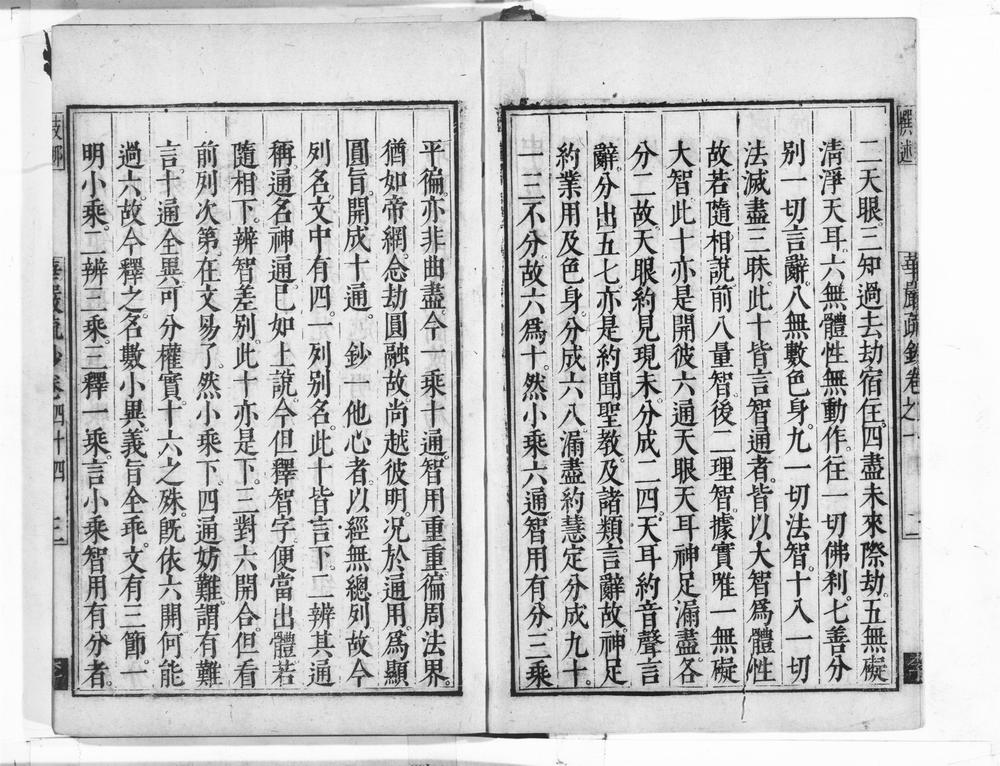 撰述
華嚴疏鈔卷之
二天眼三知過去劫宿住四盡未來際劫五無礙
清淨天耳六無體性無動作往一切佛刹七善分
別一切言辭八無數色身九一切法智十入一切
法滅盡三昧此十皆言智通者皆以大智爲體性
故若隨相說前八量智後二理智據實唯一無礙
大智此十亦是開彼六通天眼天耳神足漏盡各
分二故天眼約見現未分成二四天耳約音聲言
辭分出五七亦是約聞聖教及諸類言辭故神足
約業用及色身分成六八漏盡約慧定分成九十
一三不分故六爲十然小乘六通智用有分三乘
平徧亦非曲盡今一乘十通智用重重徧周法界
猶如帝網念劫圓融故尚越彼明况於通用爲顯
圓旨開成十通。鈔一他心者以經無總列故今
列名文中有四一列别名此十皆言下二辨其通
稱通名神通已如上說今但釋智字便當出體若
隨相下辨智差别此十亦是下三對六開合但看
前列次第在文易了然小乘下四通妨難謂有難
言十通全異可分權實十六之殊旣依六開何能
過六故今釋之名數小異義旨全乖文有三節一
明小乘二辨三乘三釋一乘言小乘智用有分者
華嚴疏鈔卷四十四